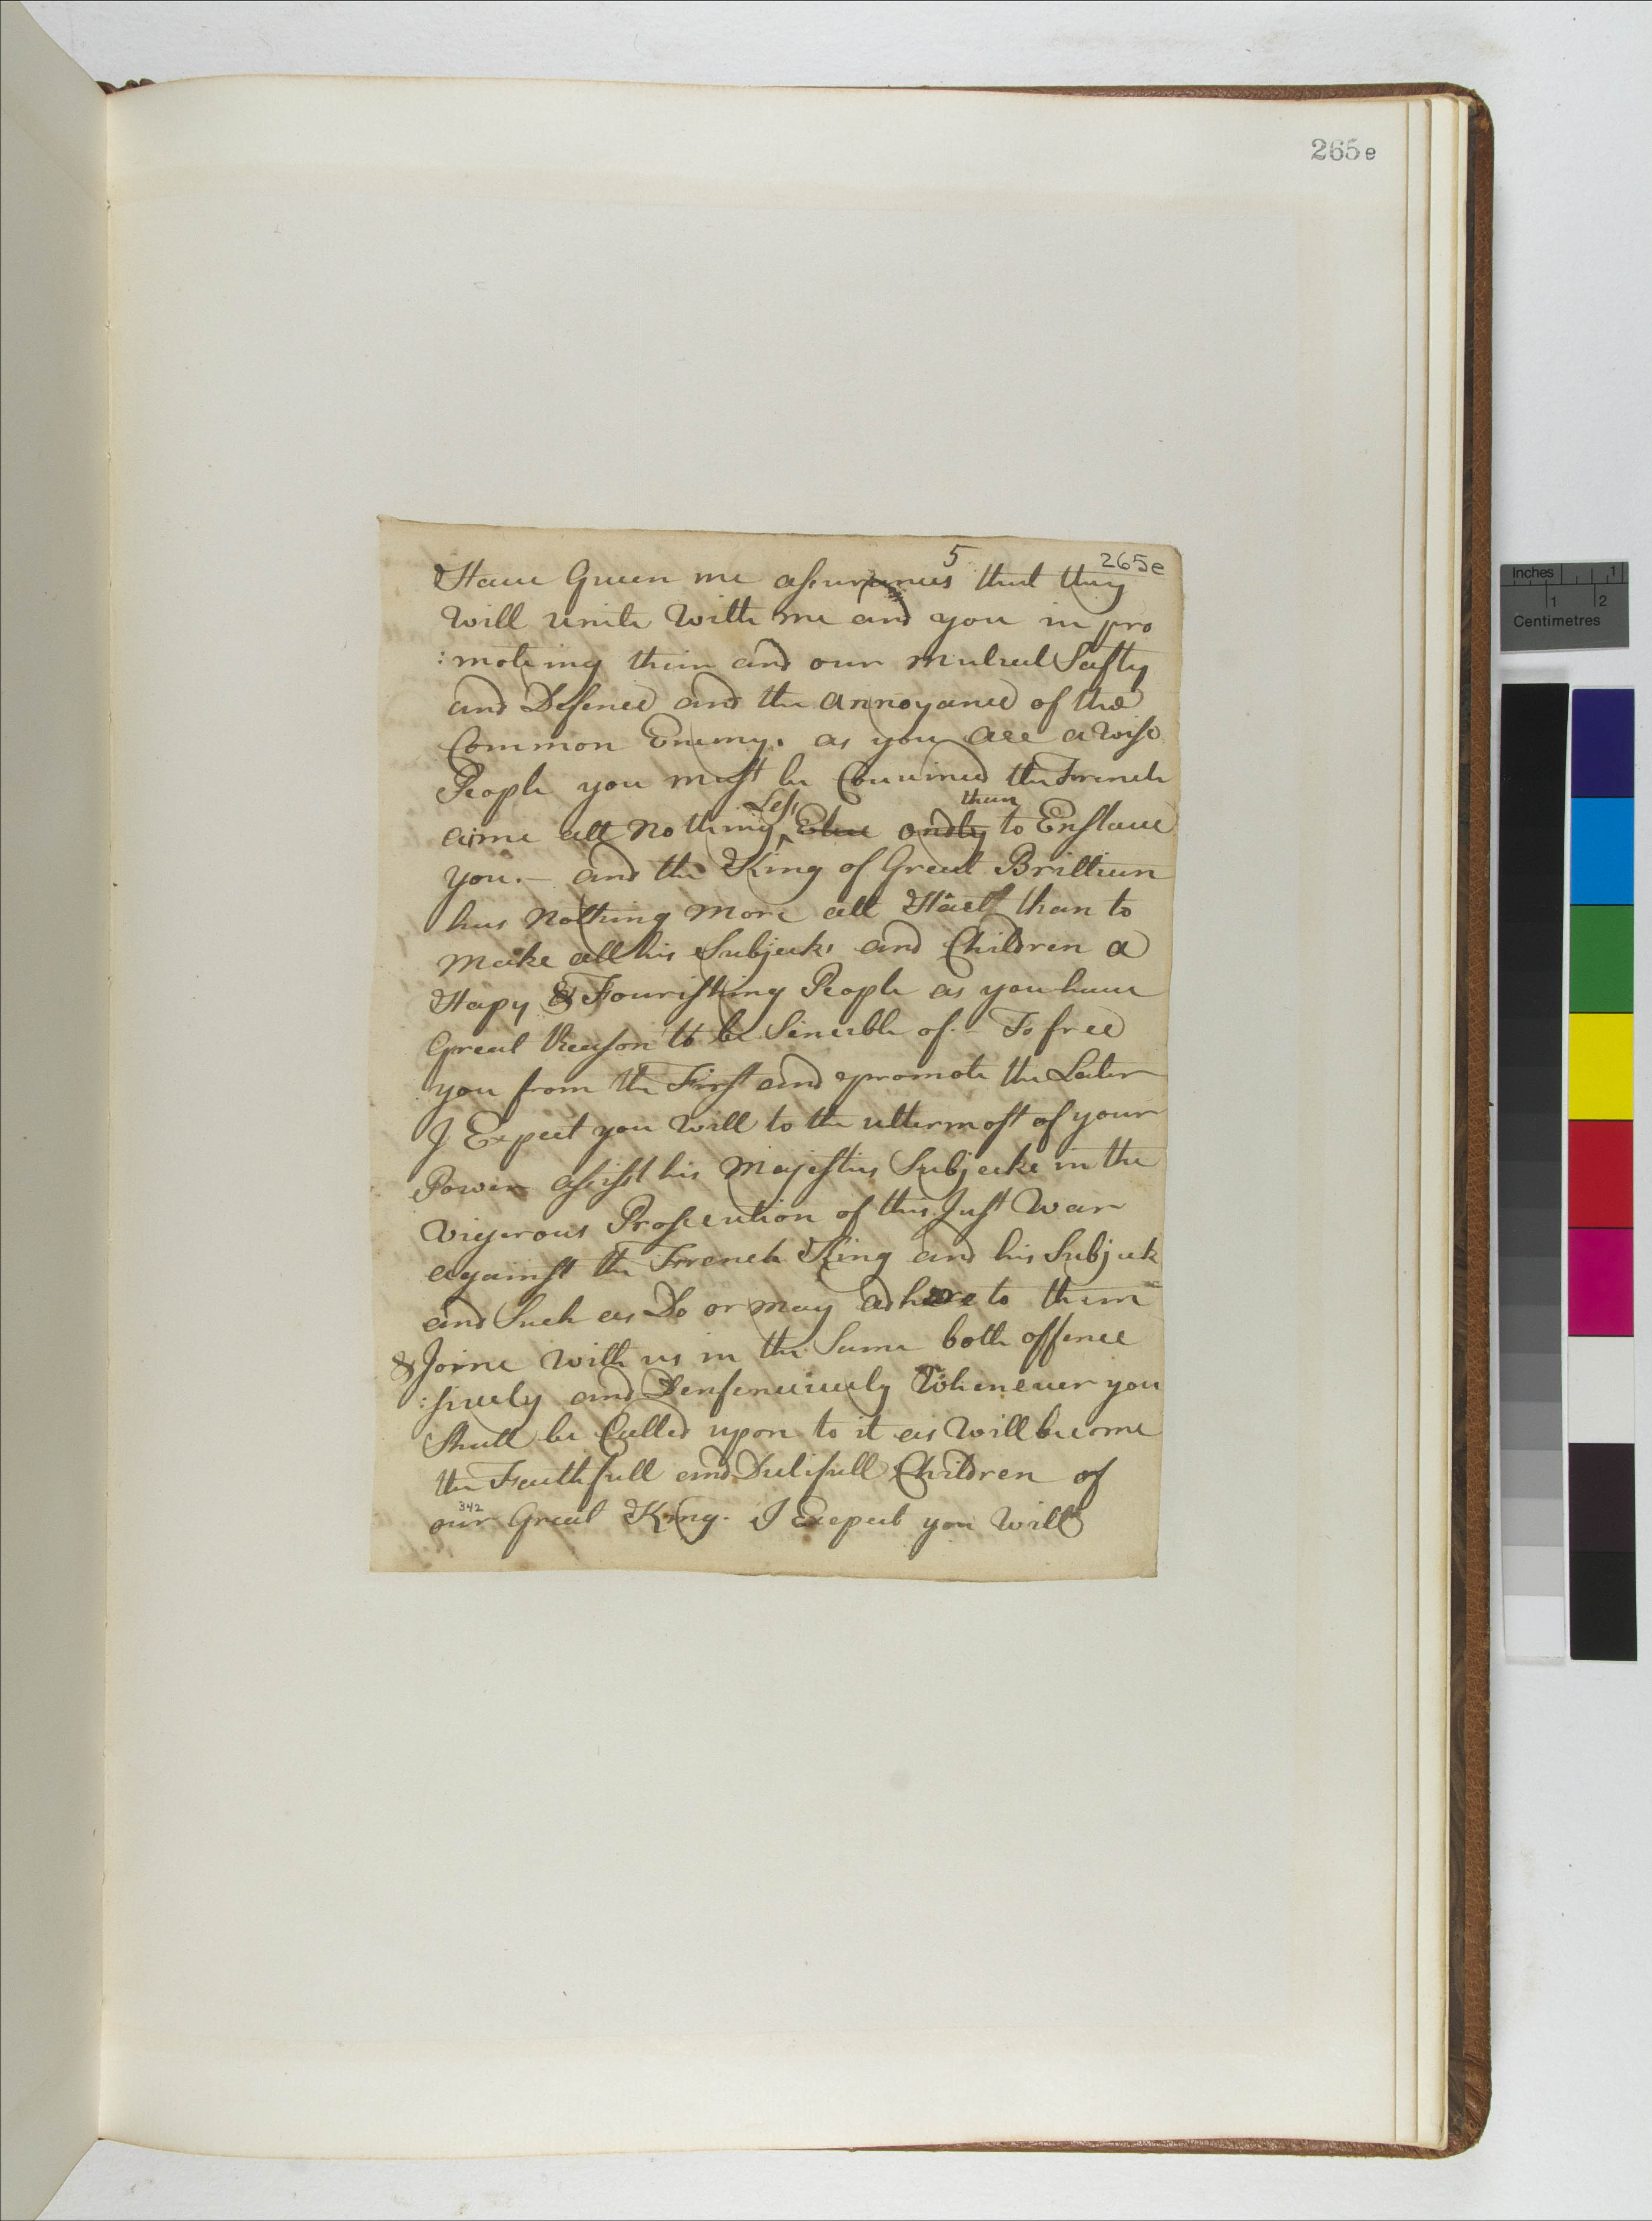 265e
5
265e
Have Given me assurances that they
will unite with me and you in pro
:moteing their and our mutual Safty
and Defence and the annoyance of the
Common Enemy. as you are a wise
People you must be Convinced the French
aime att nothing Less Else ondly then to Enslave
you.— and the King of Great Brittian
has nothing more att Haert than to
make all his Subjects and Children a
Hapy & Fourishing People as you have
Great Reason to be Sencible of.- To free
you from the First and promote the Later
I Expect you will to the uttermost of your
Power assist his Majesties Subjects in the
vigerous Prosecution of this Just War
against the French King and his Subjects
and Such as Do or may adhere to them
& Joine with us in the Same both offence
:sively and Denfencively Whenever you
Shall be Called upon to it as will become
the Faithfull and Dutifull Children of
342
our Great King. I Exepect you will